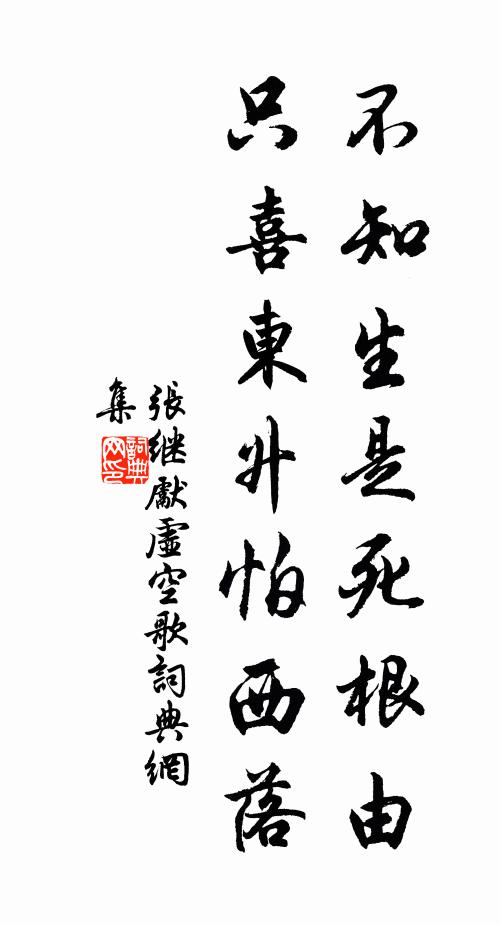 不知生是死根由
只喜東升怕西落
張继獻虛空歌詞典網
集
詞典
网印